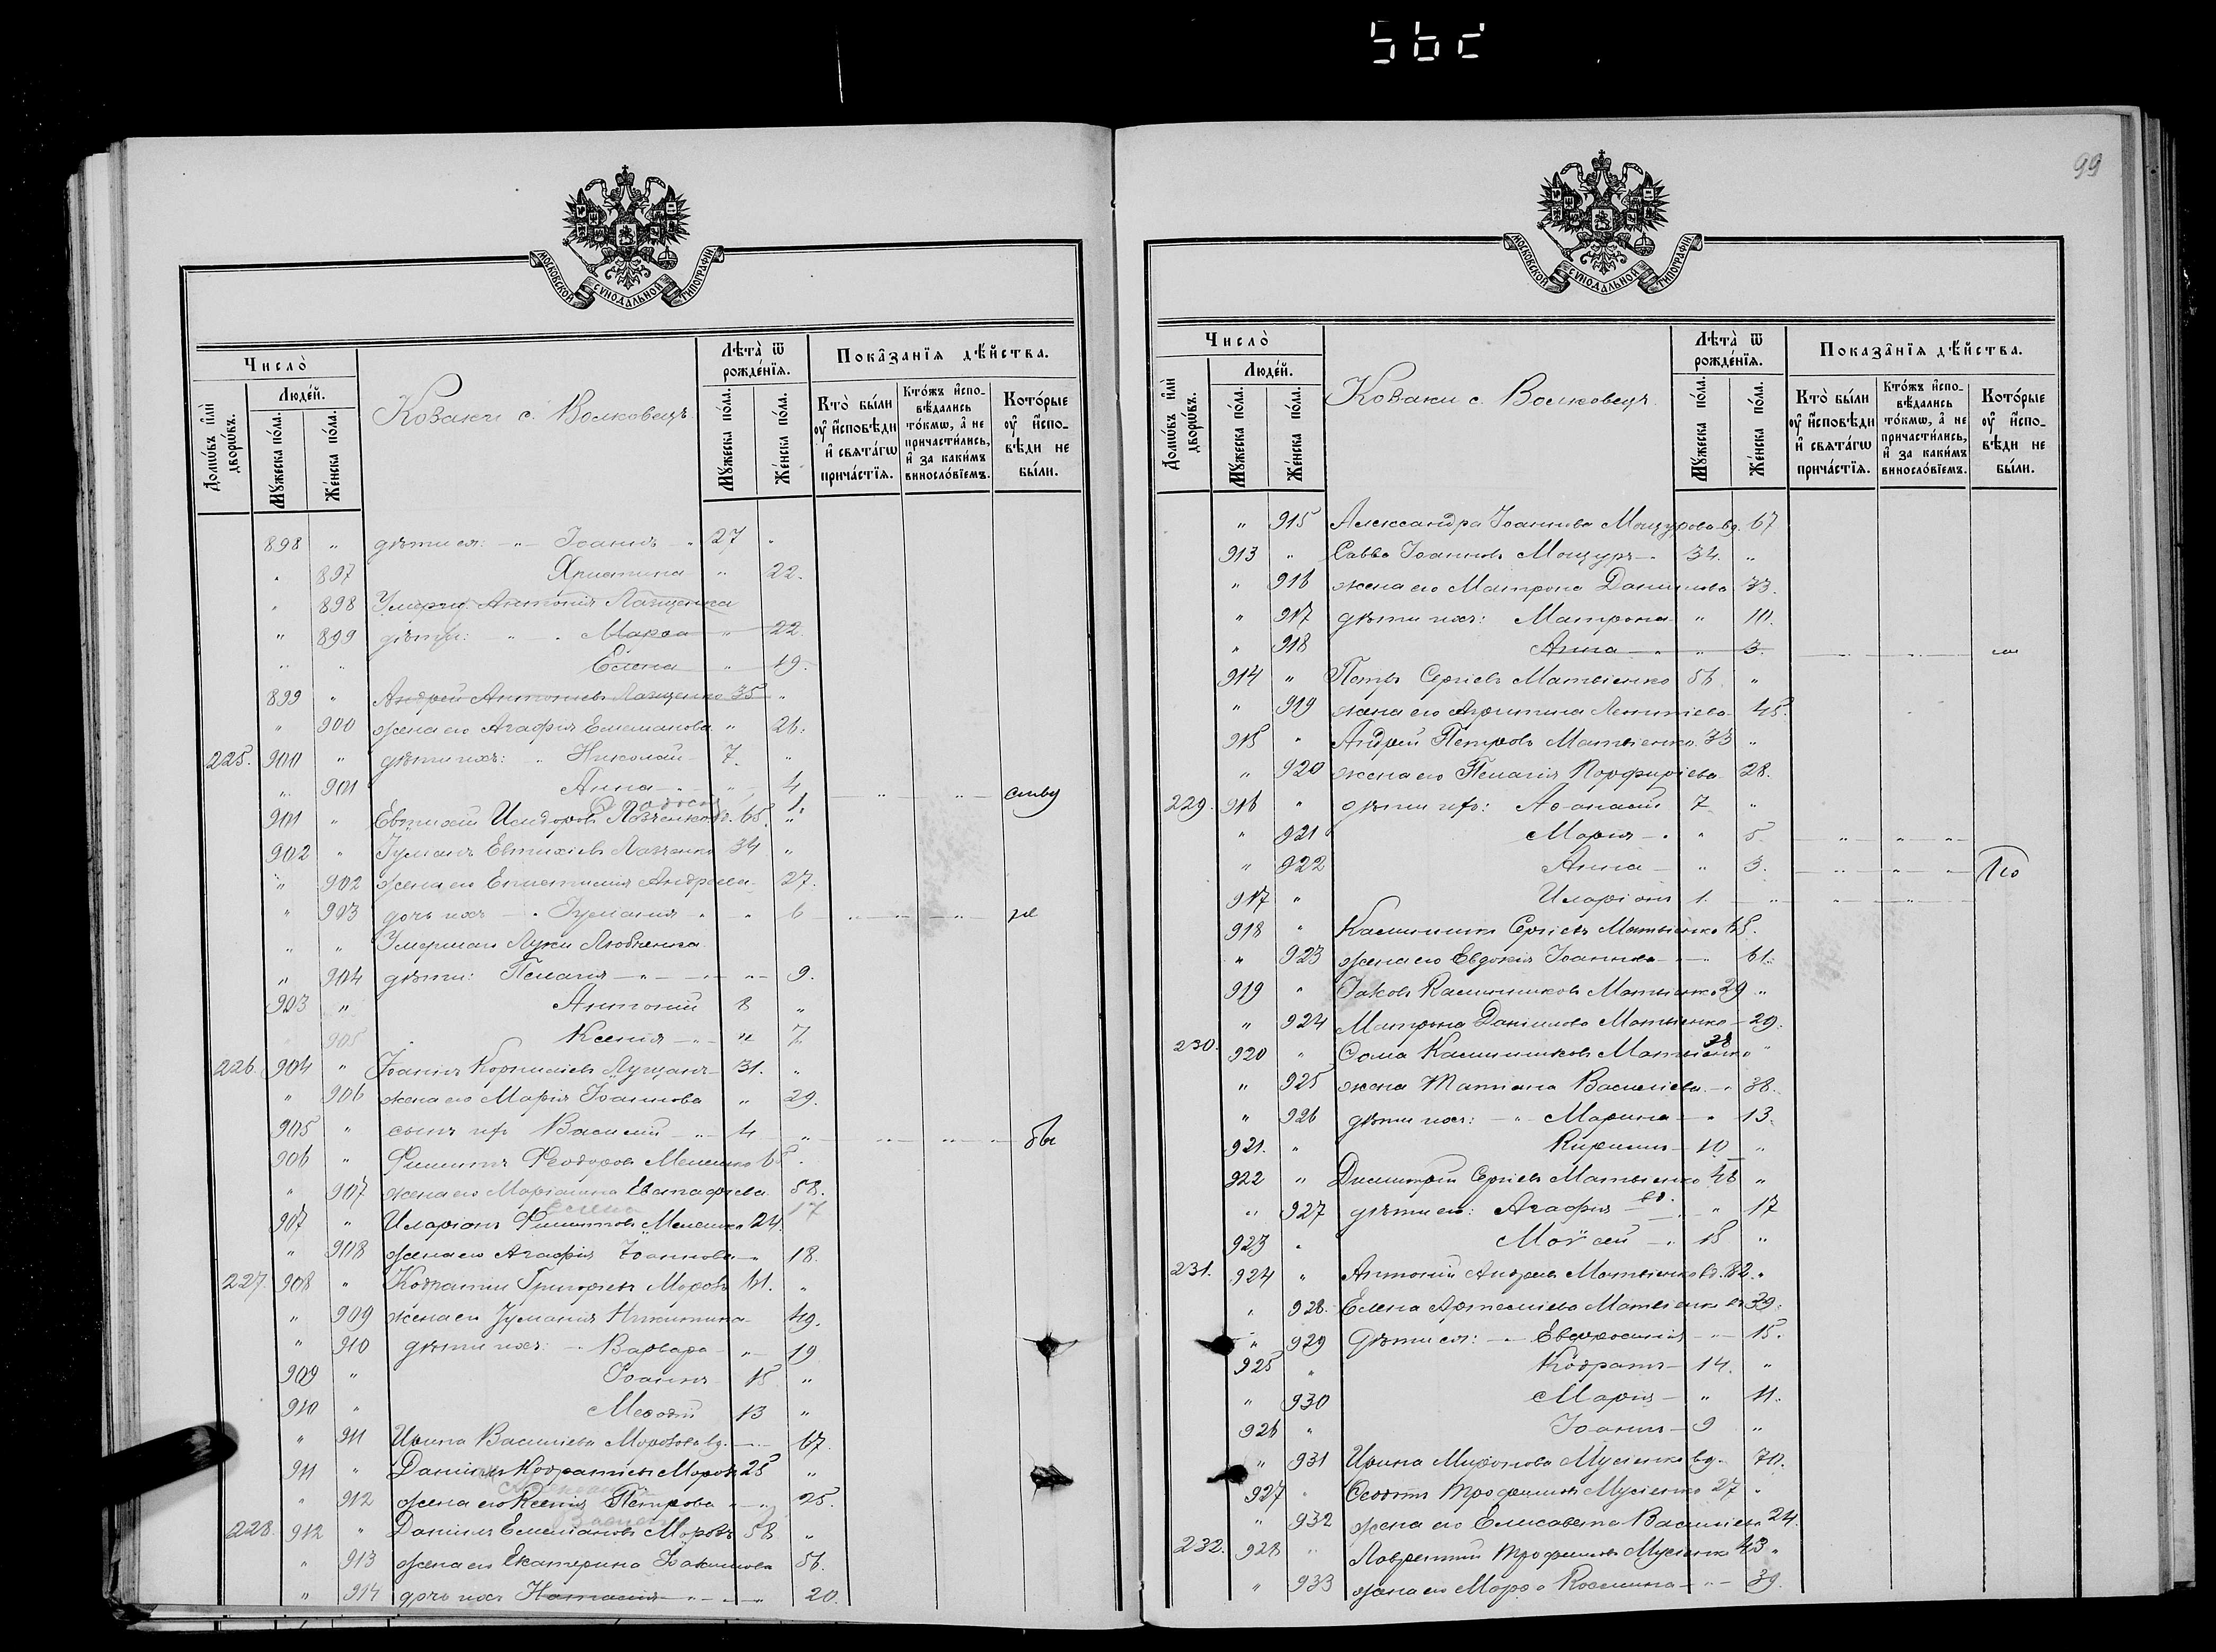 99
МОСКОВСКОЙ СѴНОДАЛЬНОЙ ТИПОГРАФІИ
Число̀
Людéй.
Домѡ́въ и҆лѝ дворѡ́въ.
Мꙋ́жеска по́ла.
Же́нска по́ла.
Козаки с. Волковецъ
Лѣта̀ ѿ рожде́нїѧ.
Мꙋ́жеска по́ла.
Же́нска по́ла.
Показа̑нїѧ дѣ́йства.
Кто̀ бы́ли ᲂу҆ и҆́сповѣди и҆ свѧта́гѡ прича́стїѧ.
Кто́жъ и҆спо-вѣ́дались то́кмѡ, а҆ не причасти́лись, и҆ за каки́мъ винослові́емъ.
Кото́рые ᲂу҆ и҆́спо-вѣди не бы́ли.
898 " дѣти ея: - " - Іоаннъ " 27 "
" 897 Христина " 22.
" 898 Умерш. Антонія Лазценка
" 899 дѣти: " - Марѳа " 22
" " Елена " 19.
899 " Андрей Антоніевъ Лазценко 35 "
" 900 жена его Агафія Емеліанова " 26.
225. 900 " дѣти ихъ: " Николай 7. "
" 901 Анна " 4 " "
1.
901 " Евтихій Исидоровъ вд. 65. "
902 " Іуліанъ Евтихіевъ 34 "
" 902 жена его Епистимія Андреева 27.
" 903 дочь ихъ - " Іуліанія " " 6 " " не
" " Умершаго Луки
" 904 дѣти: Пелагія " 9.
903 " Антоній 8 "
905 Ксенія " 7
226. 904 " Іоаннъ Корниліевъ Лущанъ 31. "
" 906 жена его Марія Іоаннова " 29.
905 " сынъ ихъ Василій " 4 " " " бы
906 " Филиппъ Ѳеодоровъ Мелешко 65.
" 907 жена его Маріанна Евстафіева 58.
Елена 17
907 " Иларіонъ Филипповъ Мелешко 24.
" 908 жена его Агафія Іоаннова " 18.
227. 908 " Кодратій Григорьевъ Морозъ 61. "
" 909 жена его Іуліанія Никитина 49.
" 910 дѣти ихъ: - Варвара " 19
909 " Іоаннъ 15 "
910 " Меѳодій 13 "
" 911 Ирина Василіева Морозова вд. 67.
911 " Даніилъ Кодратіевъ Морозъ 25 "
" 912 жена его Ксенія Петрова " 25.
228. 912 " Даніилъ Емеліановъ Морозъ 58 "
" 913 жена его Екатерина Іоакимова 56.
" 914 дочь ихъ Наталія " 20.
МОСКОВСКОЙ СѴНОДАЛЬНОЙ ТИПОГРАФІИ
Число̀
Людéй.
Домѡ́въ и҆лѝ дворѡ́въ.
Мꙋ́жеска по́ла.
Же́нска по́ла.
Козаки с. Волковецъ.
Лѣта̀ ѿ рожде́нїѧ.
Мꙋ́жеска по́ла.
Же́нска по́ла.
Показа̑нїѧ дѣ́йства.
Кто̀ бы́ли ᲂу҆ и҆́сповѣди и҆ свѧта́гѡ прича́стїѧ.
Кто́жъ и҆спо-вѣ́дались то́кмѡ, а҆ не причасти́лись, и҆ за каки́мъ винослові́емъ.
Кото́рые ᲂу҆ и҆́спо-вѣди не бы́ли.
" 915 Александра Іоаннова Мощурова вд. 67
913 " Савва Іоанновъ Мощуръ 34. "
" 916 жена его Матрона Даніилова 33.
" 917 дѣти ихъ: Матрона " 10.
" 918 Анна " " 3. " "
914 " Петръ Сергіевъ Матвіенко 56 "
" 919 жена его Акритина Леонтіева 45.
915 " Андрей Петровъ Матвіенко 33 "
" 920 жена его Пелагія Порфиріева 28.
229. 916 " дѣти ихъ: Аѳанасій 7 "
" 921 Марія " " 5. " "
" 922 Анна " 3. " "
917 " Иларіонъ 1. " " "
918 " Каллиникъ Сергіевъ Матвіенко 65.
" 923 жена его Евдокія Іоаннова " 61.
919 " Іаковъ Каллиниковъ Матвіенко 29 "
" 924 Матрона Даніилова Матвіенко 29.
230. 920 " Ѳома Каллиниковъ Матвіенко 38 "
" 925 жена Татіана Василіева " 38.
" 926 дѣти ихъ: " Марина " 13.
921. " Кириллъ 10. "
922 " Димитрій Сергіевъ Матвіенко вд. 48 "
" 927 дѣти его: Агафія " 17
923 " Моѵсей " 15 "
231. 924 " Антоній Андреевъ Матвіенко вд. 82. "
" 928. Елена Артеміева Матвіенко вд. 39.
" 929 дѣти ея: " Евфросинія " 15.
925 " Кодратъ 14. "
" 930 Марія " 11.
926 " Іоаннъ 9 "
" 931 Ирина Миронова Мусіенко вд. 70.
927 " Ѳеодотъ Трофимовъ Мусіенко 27 "
" 932 жена его Елисавета Василіева 24.
232. 928 " Лаврентій Трофимовъ Мусіенко 43 "
" 933 жена его Марѳа Козмина " 39.